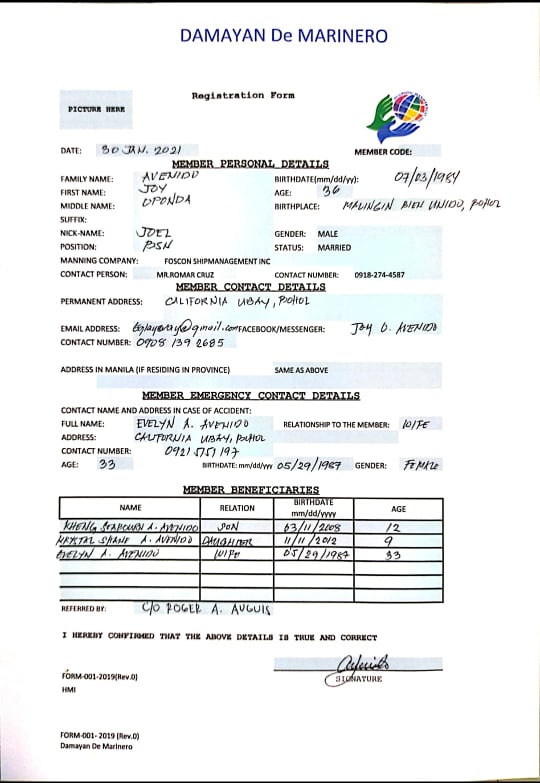 DAMAYAN De MARINERO
Registration Form
PICTURE HERE
DATE: 30 JAN. 2021 MEMBER CODE:
MEMBER PERSONAL DETAILS
FAMILY NAME: AVENIDO BIRTHDATE(mm/dd/yy): 07/03/1984
FIRST NAME: JOY AGE: 36
MIDDLE NAME: OPONDA BIRTHPLACE: MALINGIN BIEN UNIDO, BOHOL
SUFFIX:
NICK-NAME: JOEL GENDER: MALE
POSITION: BSN STATUS: MARRIED
MANNING COMPANY: FOSCON SHIPMANAGEMENT INC
CONTACT PERSON: MR.ROMAR CRUZ CONTACT NUMBER: 0918-274-4587
MEMBER CONTACT DETAILS
PERMANENT ADDRESS: CALIFORNIA UBAY, BOHOL
EMAIL ADDRESS: @gmail.com FACEBOOK/MESSENGER: JOY O. AVENIDO
CONTACT NUMBER: 0908 139 2685
ADDRESS IN MANILA (IF RESIDING IN PROVINCE) SAME AS ABOVE
MEMBER EMERGENCY CONTACT DETAILS
CONTACT NAME AND ADDRESS IN CASE OF ACCIDENT:
FULL NAME: EVELYN A. AVENIDO RELATIONSHIP TO THE MEMBER: WIFE
ADDRESS: CALIFORNIA UBAY, BOHOL
CONTACT NUMBER: 0921
AGE: 33 BIRTHDATE: mm/dd/yyy 05/29/1987 GENDER: FEMALE
MEMBER BENEFICIARIES
NAME RELATION BIRTHDATE mm/dd/yyyy AGE
KHENG A. AVENIDO SON 03/11/2008 12
KRYSTAL SHANE A. AVENIDO DAUGHTER 11/11/2012 9
EVELYN A. AVENIDO WIFE 05/29/1987 33
REFERRED BY: C/O ROGER A. AUGUIS
I HEREBY CONFIRMED THAT THE ABOVE DETAILS IS TRUE AND CORRECT
SIGNATURE
FORM-001-2019(Rev.0)
HMI
FORM-001- 2019 (Rev.0)
Damayan De Marinero